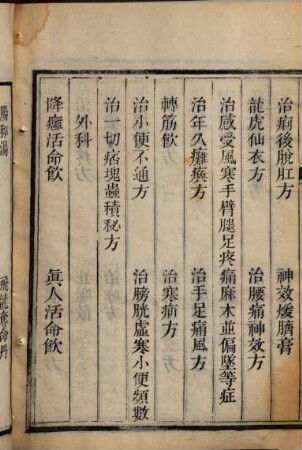 治痢後脫肛方 神效煖臍膏
龍虎仙衣方 治腰痛神效方
治感受風寒手臂腿足疼痛麻木並偏墜等症
治年久癱瘓方 治手足痛風方
轉筋飲 治寒疝方
治小便不通方 治膀胱虛寒小便頻數
治一切痞塊蟲積秘方
外科
降癰活命飲 眞人活命飲
陽和湯 飛龍奪命丹